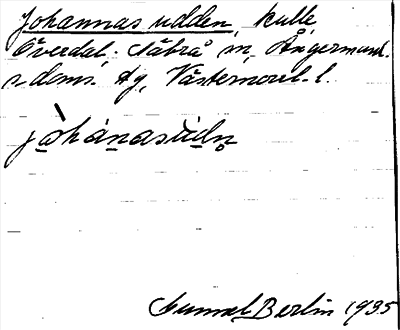 Johannasudden, kulle,
Överdal, Säbrå sn, Ångermanl.
s. doms. dg, Västernorrl. l.
jòhánasúdn̥
Gunnel Berlin 1935